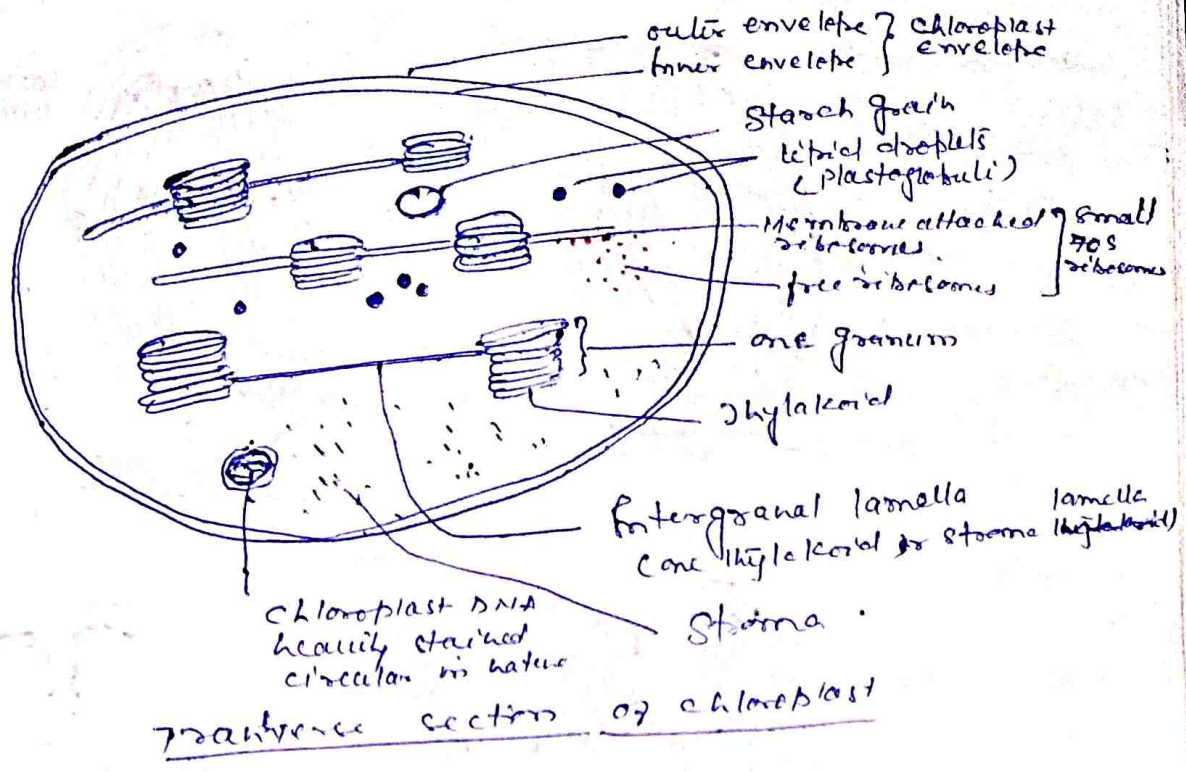 outer envelope } chloroplast
Inner envelope } envelope
Starch grain
lipid droplets
(Plastoglobuli)
Membrane attached
ribosomes
free ribosomes
small
70S
ribosomes
one granum
Thylakoid
Intergranal lamella
(one thylakoid or stroma lamella
Stroma
chloroplast DNA
heavily stained
circular in nature
Transverse section of chloroplast